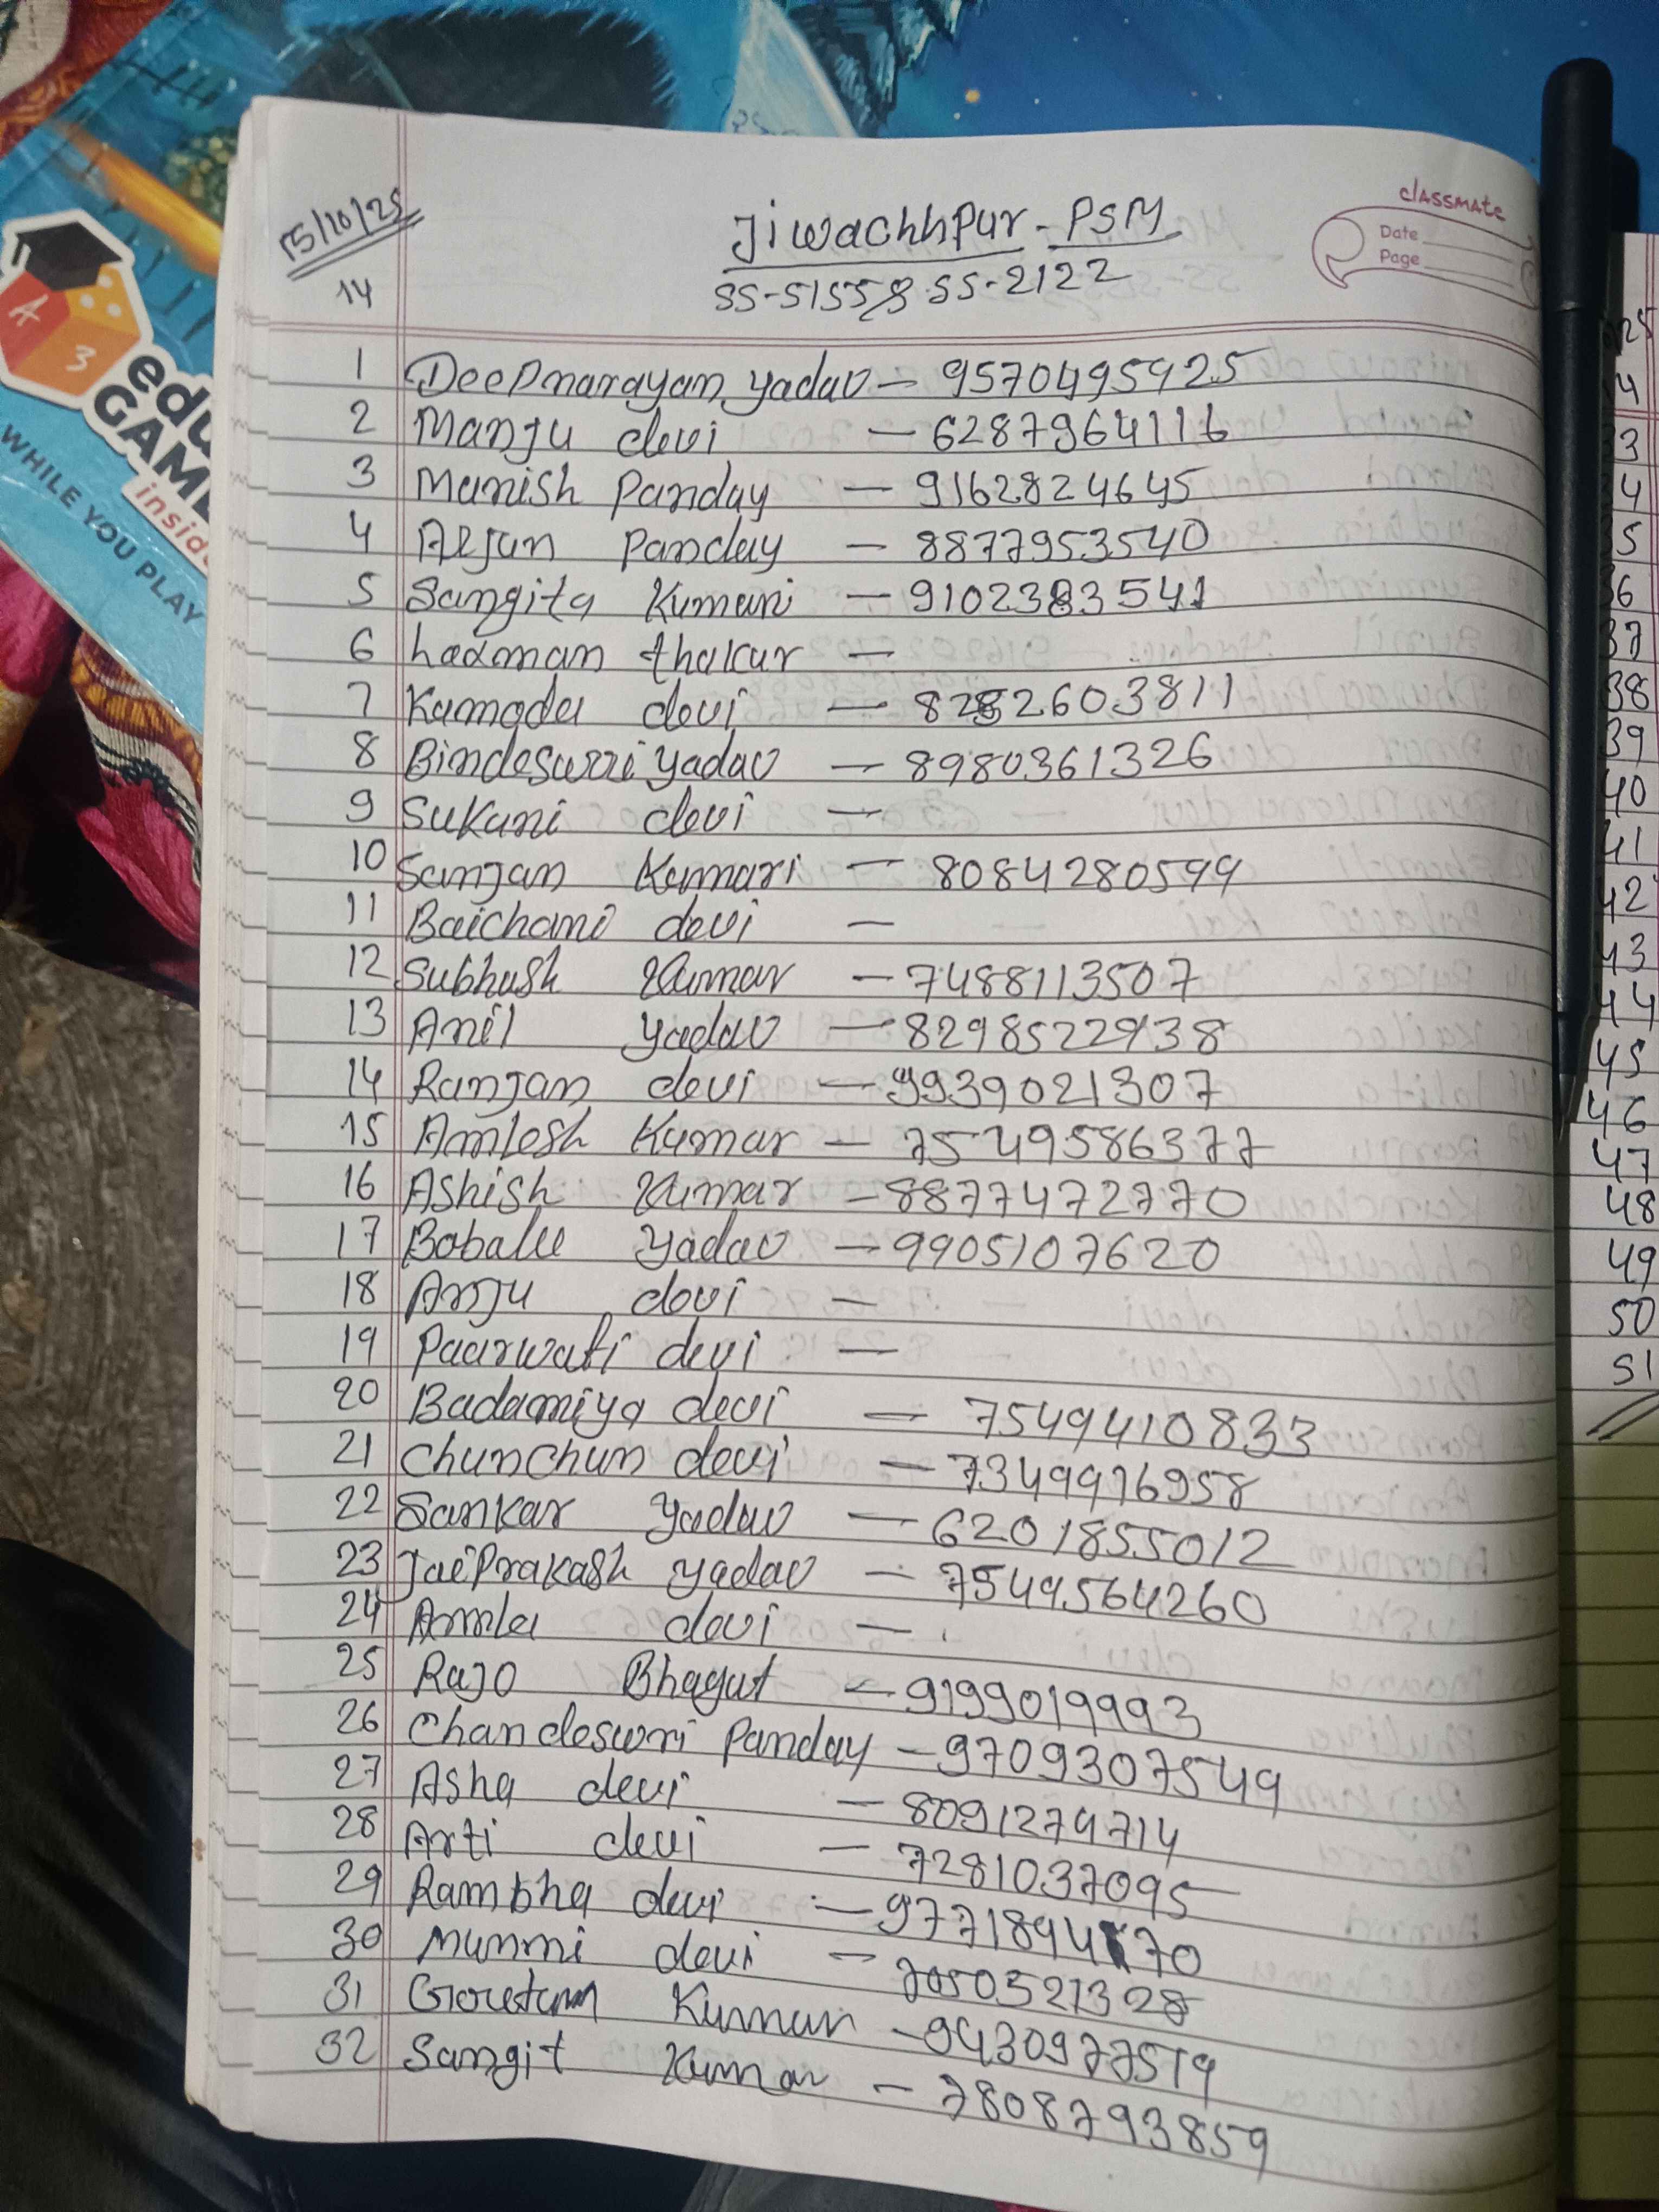 15/10/25
14
Jiwachhpur - PSM
SS-51558 SS-2122
classmate
Date
Page
1 Deepnarayan yadav - 9570495925
2 Manju devi - 6287964116
3 Manish Panday - 9162824645
4 Arjun Panday - 8877953540
5 Sangita Kumari - 9102383541
6 Laxman thakur -
7 Kamoda devi - 8282603811
8 Bindeswri yadav - 8980361326
9 Sukani devi -
10 Sanjan Kumari - 8084280599
11 Baichani devi -
12 Subhash Kumar - 7488113507
13 Anil yadav - 8298522938
14 Ranjan devi - 9939021307
15 Amlesh Kumar - 7549586377
16 Ashish Kumar - 8877472770
17 Bobalu Yadav - 9905107620
18 Anju devi -
19 Paarwati devi -
20 Badamiya devi - 7549410833
21 Chunchun devi - 7349976958
22 Sankar yadav - 6201855012
23 Jaiprakash yadav - 7549564260
24 Amla devi -
25 Rajo Bhagat - 9199019993
26 Chandeswri Panday - 9709307549
27 Asha devi - 8091274714
28 Arti devi - 7281037095
29 Rambha devi - 9771894170
30 Munni devi - 7050521328
31 Goutam Kumar - 9430977519
32 Sangit Kumar - 7808793859
edu
GAM
inside
WHILE YOU PLAY
A
3
25
4
3
4
5
36
37
38
39
40
41
42
43
44
45
46
47
48
49
50
51